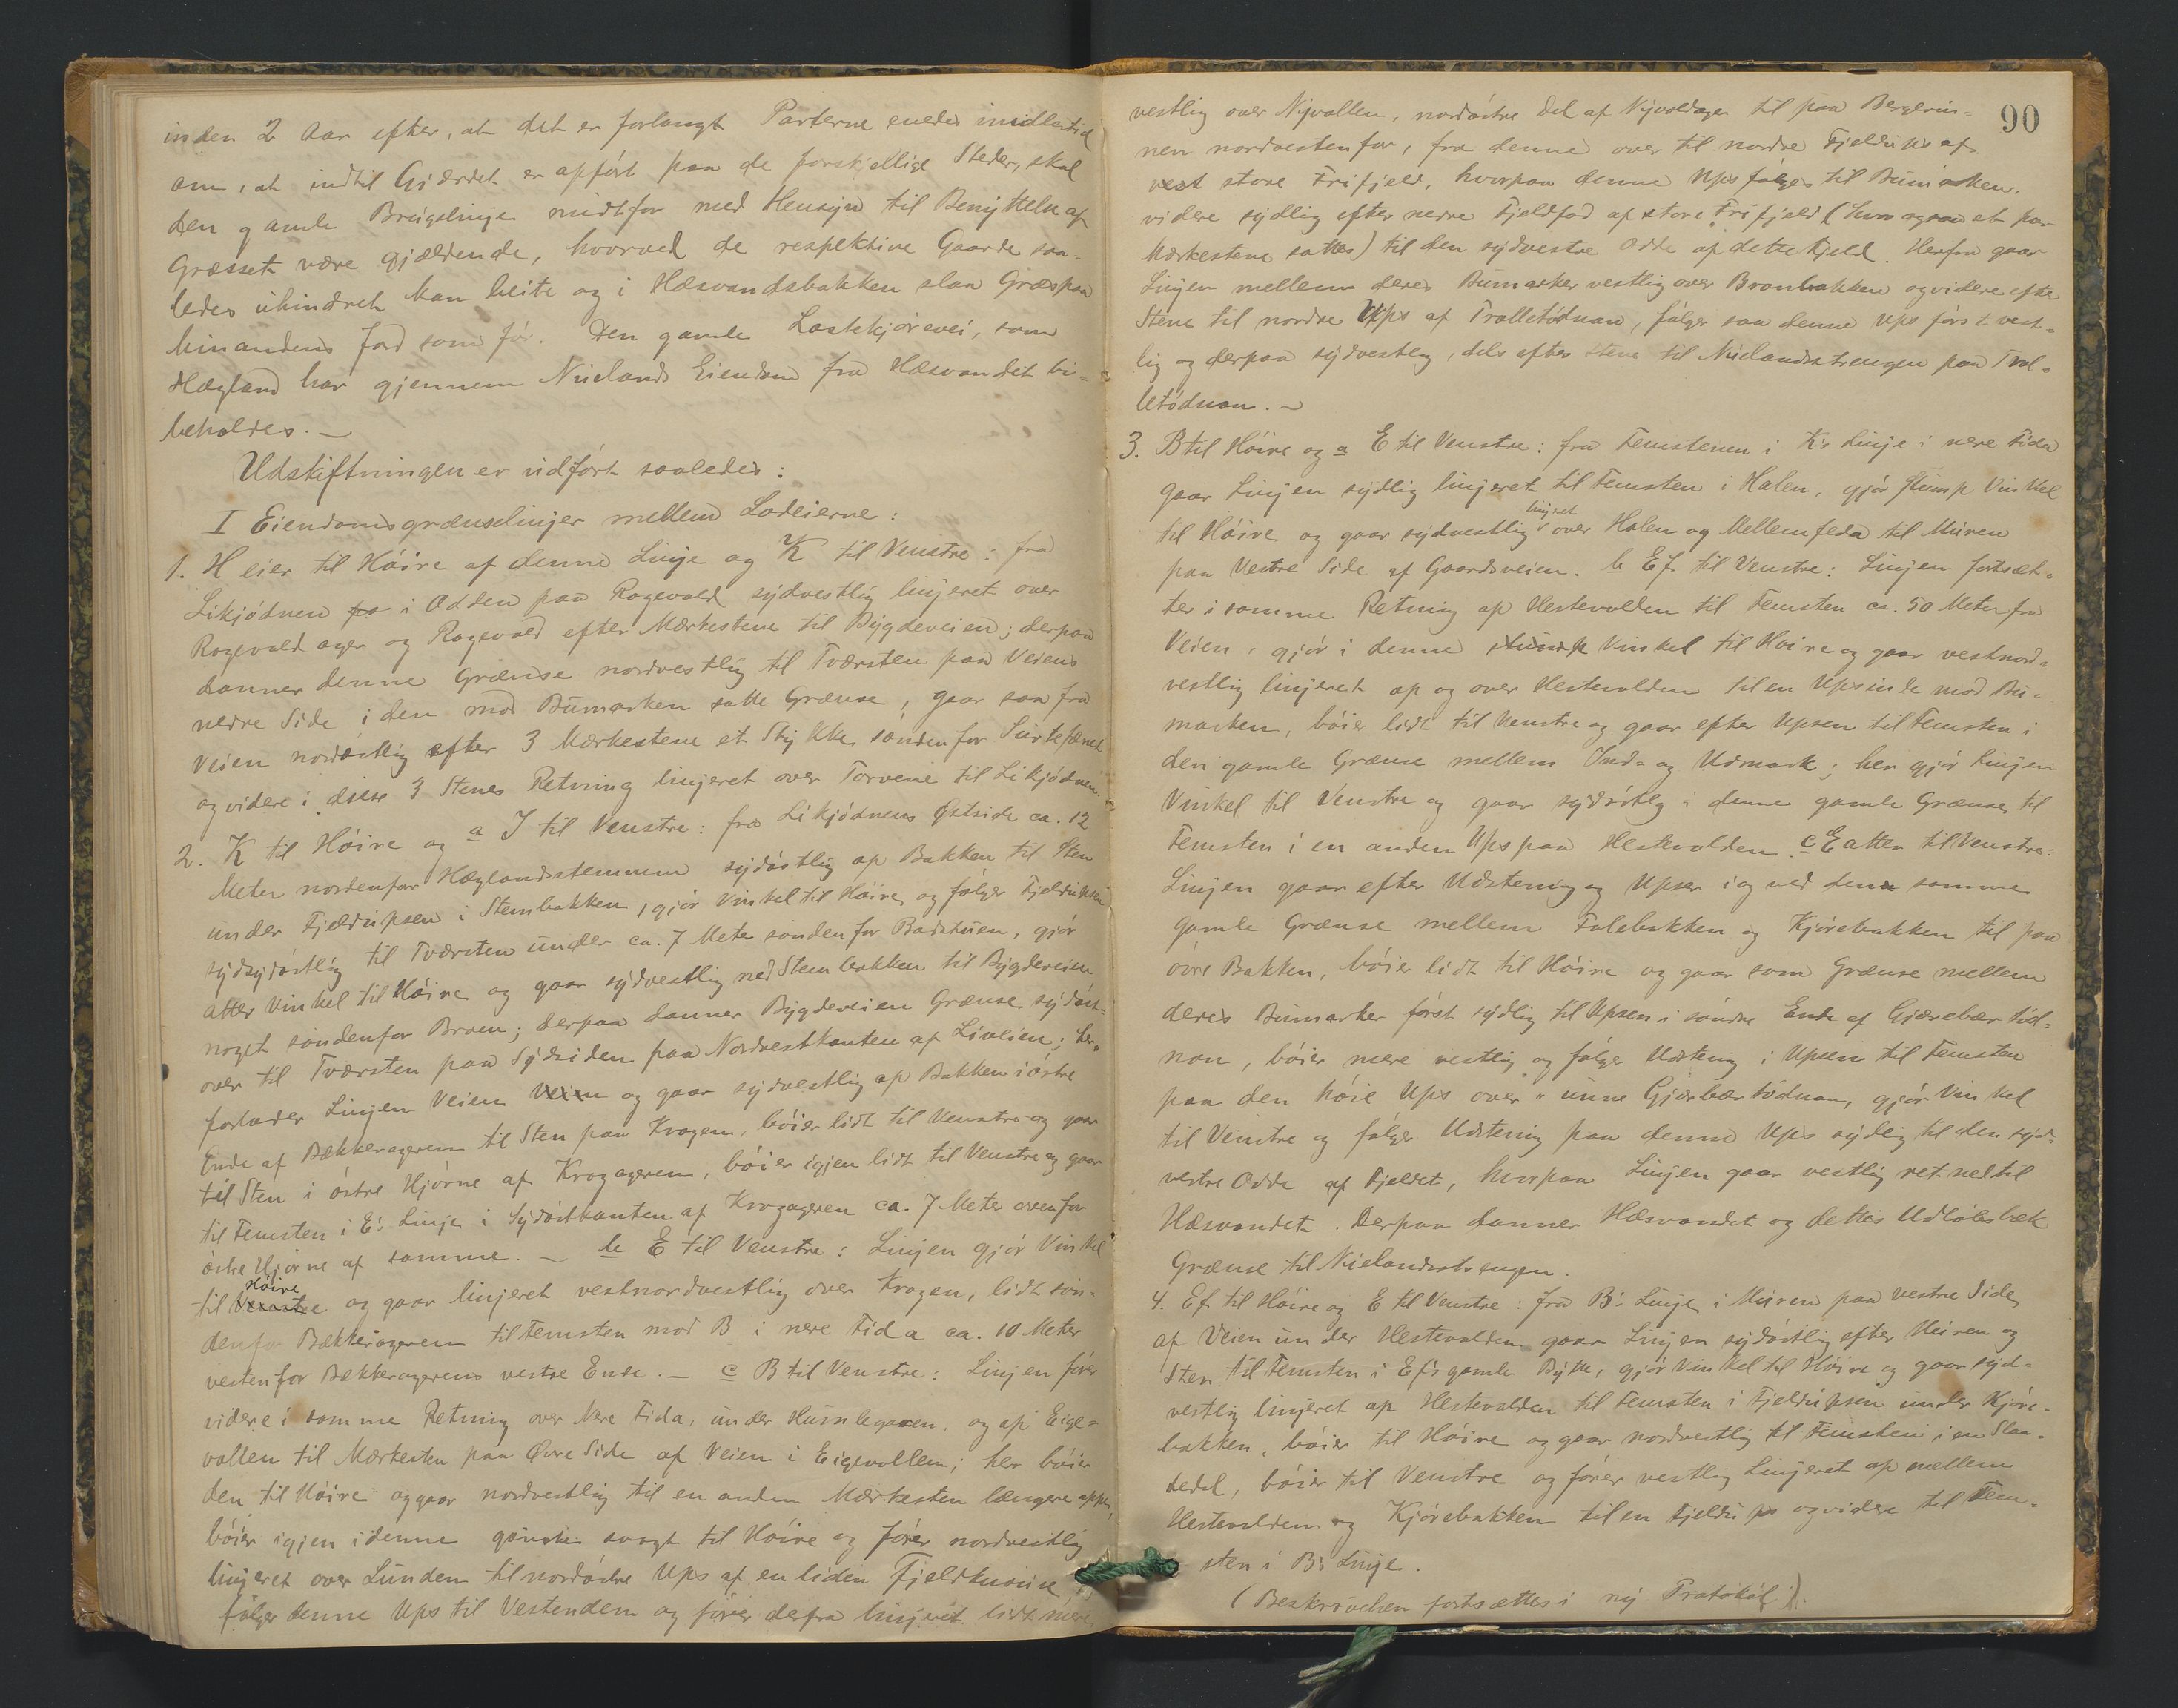 inden 2 Aar efter, at det er forlangt Parterne enedes imidlertid
om, at indtil Gjærdet er opført paa de forskjellige Steder, skal
den gamle Brugslinje midtfor med Hensyn til Benyttelse af
Græsset være gjældende, hvorved de respektive Gaarde saa-
ledes uhindret kan beite og i Hæsvandsbakken slaa Græs paa
hinandens Jord som før. Den gamle Lastekjørevei, som
Hægland har gjennem Nuelands Eiendom fra Hæsvandet bi-
beholdes. —
Udskiftningen er udført saaledes:
I Eiendomsgrænselinjer mellem Lodeierne:
1. H eier til Høire af denne Linje og K til Venstre: fra
Likjødnen i Odden paa Rogevold sydvestlig linjeret over
Rogevold ager og Rogevold efter Mærkestene til Bygdeveien; derpaa
danner denne Grænse nordvestlig til Tværsten paa Veiens
nedre Side i den mod Bumarken satte Grænse, gaar saa fra
Veien nordøstlig efter 3 Mærkestene et Stykke søndenfor
og videre i disse 3 Stenes Retning linjeret over Torvene til Likjødnen. —
2. K til Høire og a I til Venstre: fra Likjødnens Østside ca. 12
Meter nordenfor Hæglandsstemmen sydøstlig op Bakken til Sten
under Fjeldupsen i Stembakken, gjør Vinkel til Høire og følger Fjeldupsen
sydsydøstlig til Tværsten under ca. 7 Meter søndenfor Badstuen, gjør
atter Vinkel til Høire og gaar sydvestlig ned Stembakken til Bygdeveien
noget søndenfor Broen; derpaa danner Bygdeveien Grænse sydøst-
over til Tværsten paa Sydsiden paa Nordvestkanten af Liveien; her
forlader Linjen Veien og gaar sydvestlig op Bakken i østre
Ende af Bækkeragerem til Sten paa Kragen, bøier lidt til Venstre og gaar
til Sten i østre Hjørne af Krogageren, bøier igjen lidt til Venstre og gaar
til Femsten i E's Linje i Sydøstkanten af Krogageren ca. 7 Meter ovenfor
østre Hjørne af samme. — b E til Venstre: Linjen gjør Vinkel
til Høire og gaar linjeret vestnordvestlig over Kragen, lidt søn-
denfor Bækkeragerem til Femsten mod B i nere Fida ca. 10 Meter
vestenfor Bækkeragerens vestre Ende. — c B til Venstre: Linjen fører
videre i samme Retning over Nere Fida, under Humlegaren, og op Eige-
vollen til Mærkesten paa Øvre Side af Veien i Eigevollen; her bøier
den til Høire og gaar nordvestlig til en anden Mærkesten længere oppe,
bøier igjen i denne ganske svagt til Høire og fører nordvestlig
linjeret over Lunden til nordøstre Ups af en liden Fjeldknause,
følger denne Ups til Vestenden og fører derfra linjeret lidt mere
90
vestlig over Nyvollen, nordøstre Del af Nyvoldager til paa Bergerin-
nen nordvestenfor, fra denne over til nordre Fjeldups af
vest store Frifjeld, hvorpaa denne Ups følges til Bumarken.
videre sydlig efter nedre Fjeldfod af store Frifjeld (hvor ogsaa et par
Mærkestene sattes) til den sydvestre Odde af dette Fjeld. Herfra gaar
Linjen mellem deres Bumarker vestlig over Bronbakken og videre efter
Stene til nordre Ups af Trolletødnan, følger saa denne Ups først vest-
lig og derpaa sydvestlig, dels efter Stene til Nuelandsstrengen paa Trol-
letødnan. —
3. B til Høire og a E til Venstre: fra Femstenen i K's Linje i nere Fida
gaar Linjen sydlig linjeret til Femsten i Halen, gjør stump Vinkel
til Høire og gaar sydvestlig linjeret over Halen og Mellemfeda til Muren
paa Vestre Side af Gaardsveien. b Ef til Venstre: Linjen fortsæt-
ter i samme Retning op Hestevolden til Femsten ca. 50 Meter fra
Veien, gjør i denne stump Vinkel til Høire og gaar vestnord-
vestlig linjeret op og over Hestevolden til en Ups inde mod Bu-
marken, bøier lidt til Venstre og gaar efter Upsen til Femsten i
den gamle Grænse mellem Ind- og Udmark; her gjør Linjen
Vinkel til Venstre og gaar sydøstlig i denne gamle Grænse til
Femsten i en anden Ups paa Hestevolden. c E atter til Venstre:
Linjen gaar efter Udstening og Upser i og ved den samme
gamle Grænse mellem Folebakken og Kjørebakken til paa
øvre Bakken, bøier lidt til Høire og gaar som Grænse mellem
deres Bumarker først sydlig til Upsen i søndre Ende af Gjærebær tød-
nan, bøier mere vestlig og følger Udstening i Upsen til Femsten
paa den høie Ups over unne Gjærbærtødnan, gjør Vinkel
til Venstre og følger Udstening paa denne Ups sydlig til den syd-
vestre Odde af Fjeldet, hvorpaa Linjen gaar vestlig ret ned til
Hæsvandet. Derpaa danner Hæsvandet og dettes Udløbsbæk
Grænse til Nuelandsstrengen.
4. Ef til Høire og E til Venstre: fra B's Linje i Muren paa vestre Side
af Veien under Hestevolden gaar Linjen sydøstlig efter Muren og
Sten til Femsten i Ef's gamle Bytte, gjør Vinkel til Høire og gaar syd-
vestlig linjeret op Hestevolden til Femsten i Fjeldupsen under Kjøre-
bakken, bøier til Høire og gaar nordvestlig til Femsten i en Slaa-
dedal, bøier til Venstre og fører vestlig Linjeret op mellem
Hestevolden og Kjørebakken til en Fjeldups og videre til Fem-
sten i B's Linje.
(Beskrivelsen fortsættes i ny Protokol).